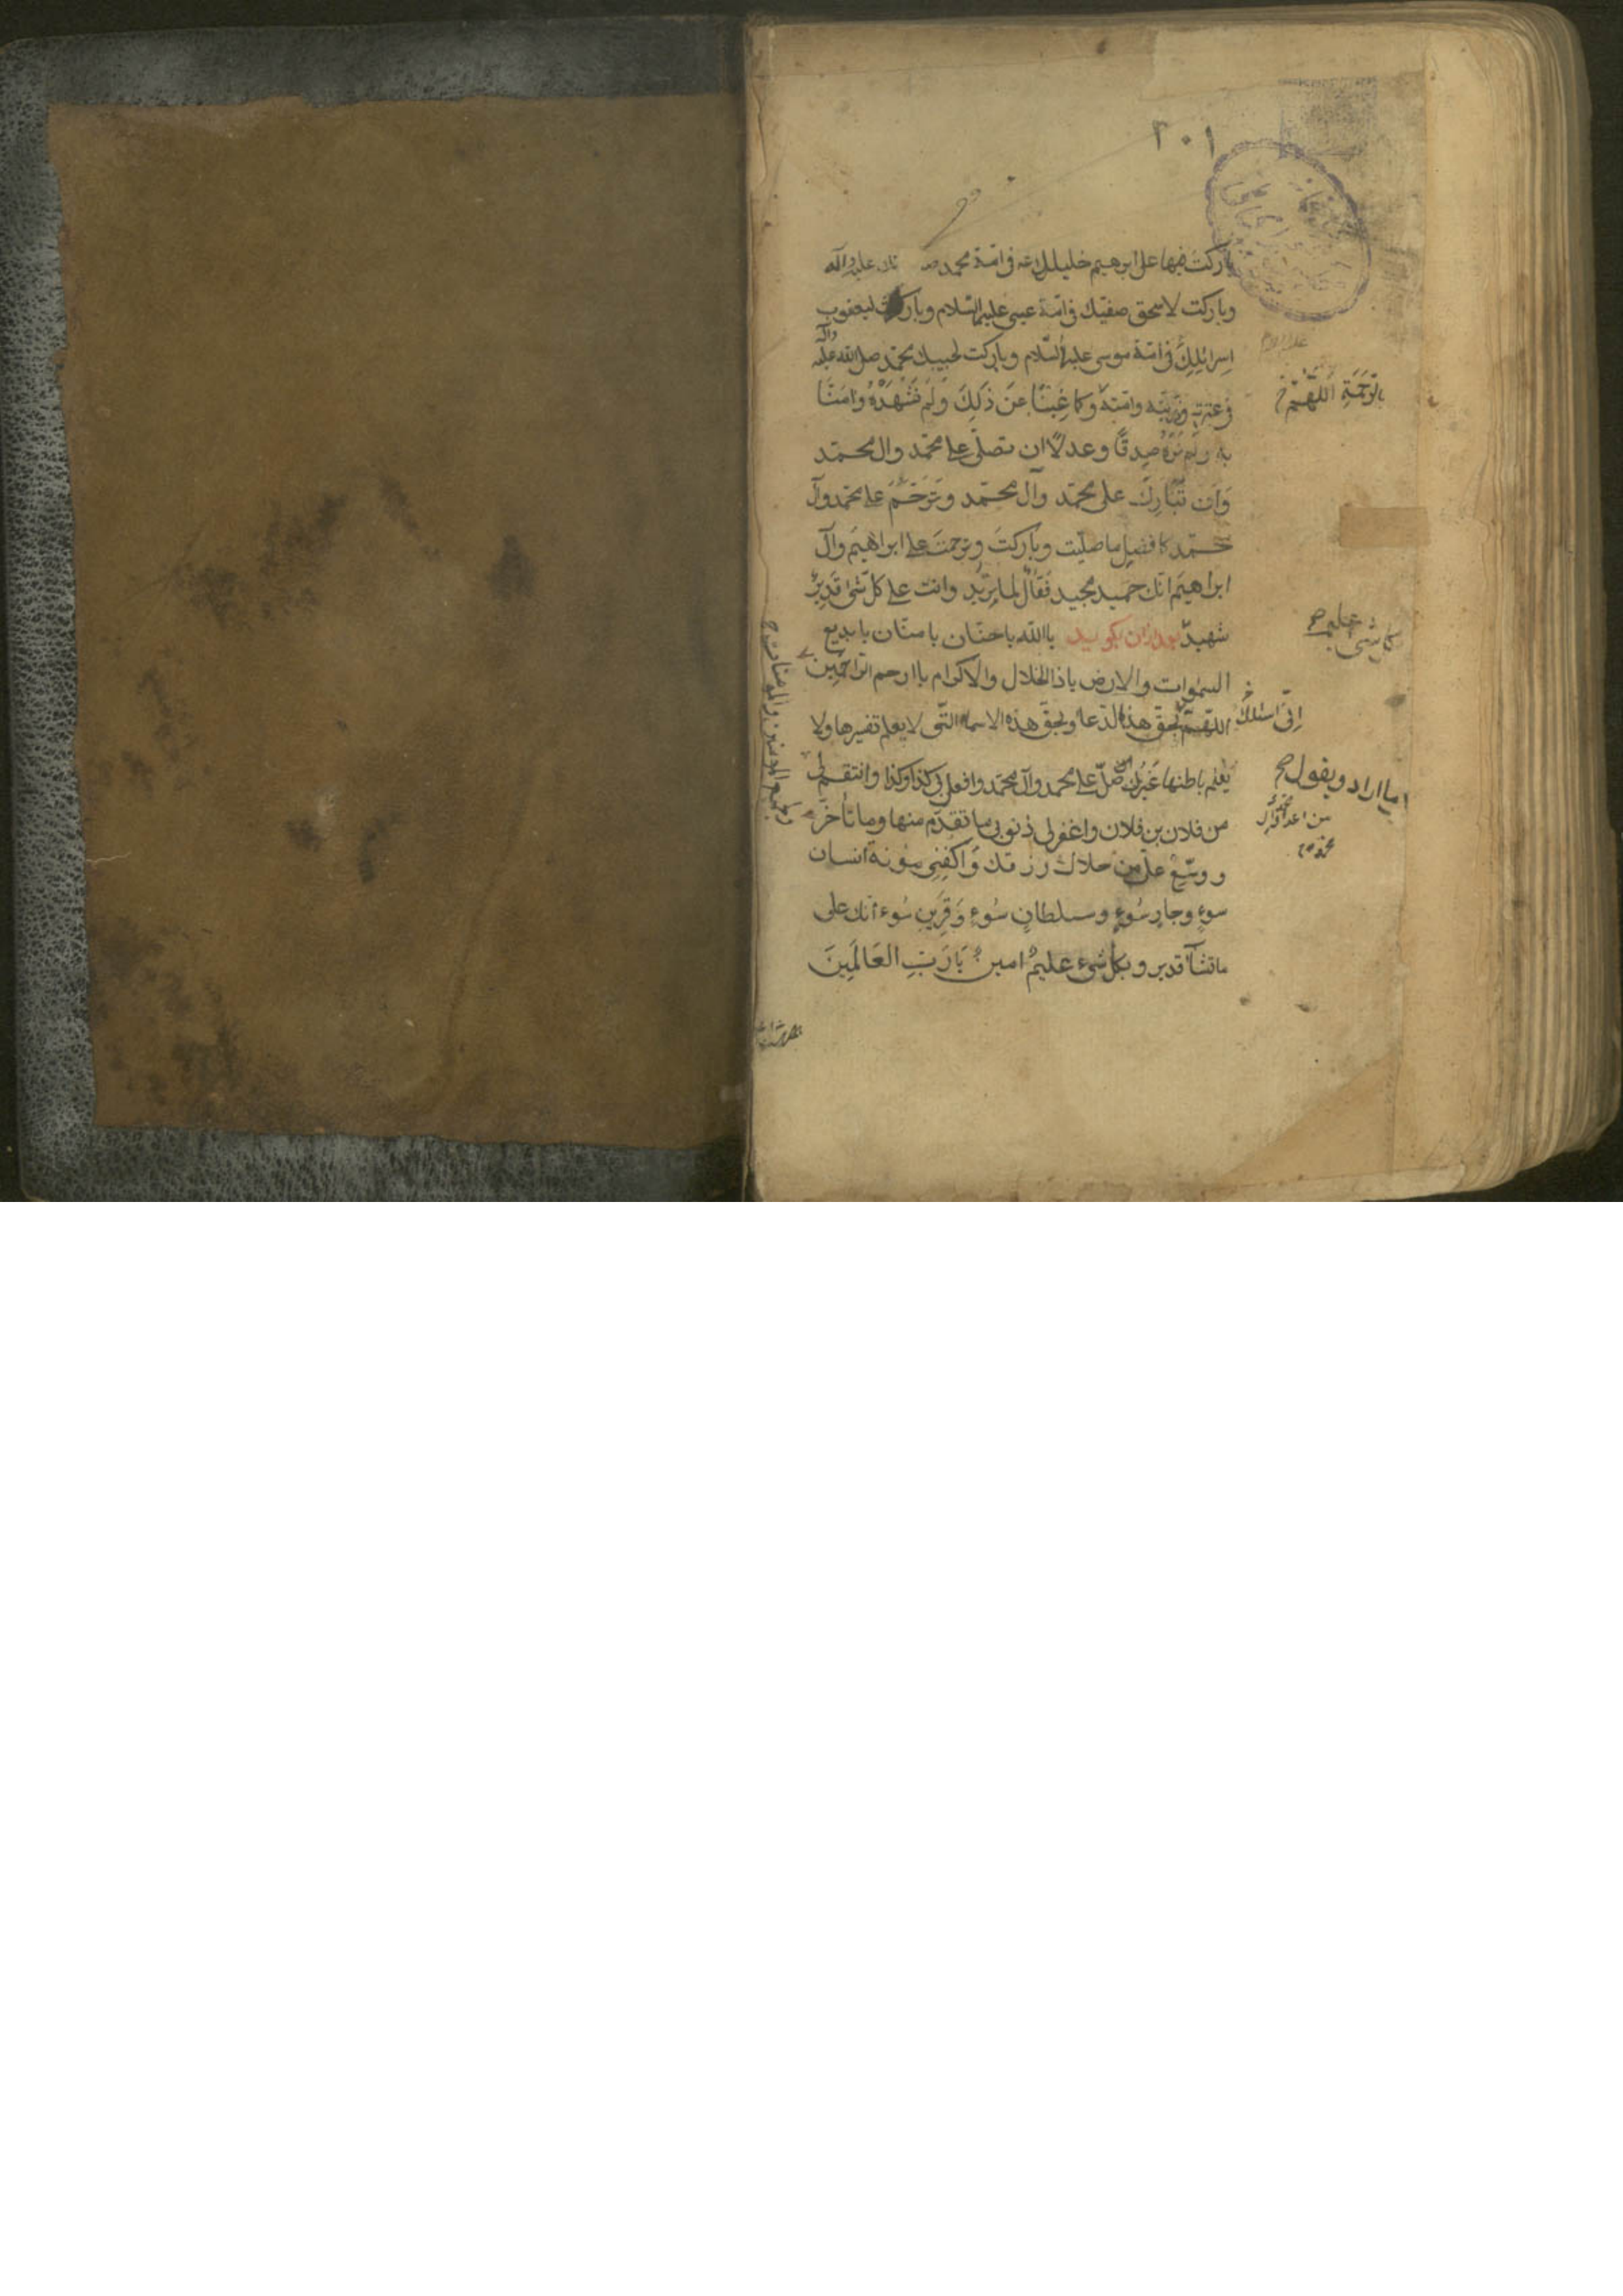 ٢٠١
باركت فيها على ابرهيم خليلك في امة محمد عليه وآله
وباركت لاسحق صفيك في امة عيسى عليهما السلام وباركت ليعقوب
اسرائلك في امة موسى عليهما السّلام وباركت لحبيبك محمّد صلى الله عليه وآله
في عترته وذريته وامته وكما غِبْنَا عَنْ ذَلِكَ وَلَمْ نَشْهَدْهُ وَامَنَّا
به ولم نَرَهُ صِدقًا وعدلًا ان تصلّى على محمّد وال محمّد
وَان تُبَارِكَ على محمّد وآل محمّد وتَرَحَّمَ على محمد وآل
محمّد كافضل ما صلّيت وباركتَ وترحمتَ على ابراهيم وآل
ابراهيم انّك حميد مجيد فعّال لما تريد وانت على كل شئ قَدِيرٌ
شهيدٌ بعد ازان بكوييد ياالله ياحنّان يا منّان يا بديع
السموات والارض ياذا الجلال والاكرام ياارحم الراحمين
اللّهمّ بحقّ هذا الدّعا وبحقّ هذه الاسماء الّتى لا يعلم تفسيرها ولا
يَعْلم باطنها غَيْرُك صلّ على محمد وآل محمّد وافعل بى كذا وكذا وانتقم لى
من فلان بن فلان واغفر لى ذنوبى ما تقدّم منها وما تأخّر
ووسّع علىّ من حلال رزقك وَاكفِنِى مؤنة انسان
سوءٍ وجارِ سُوءٍ وسلطانِ سُوءٍ وَقَرِينِ سُوء انّك على
ما تشآء قدير وبكل شىء عليمٌ امين يَارَبَّ العَالَمِينَ
عليه السلام
بالرَّحْمَةِ اَللّهُمَّ
اِنّى اسئلك
ما اراد ويقول
من اعداء آل
محمد
ولجميع المومنين والمومنات